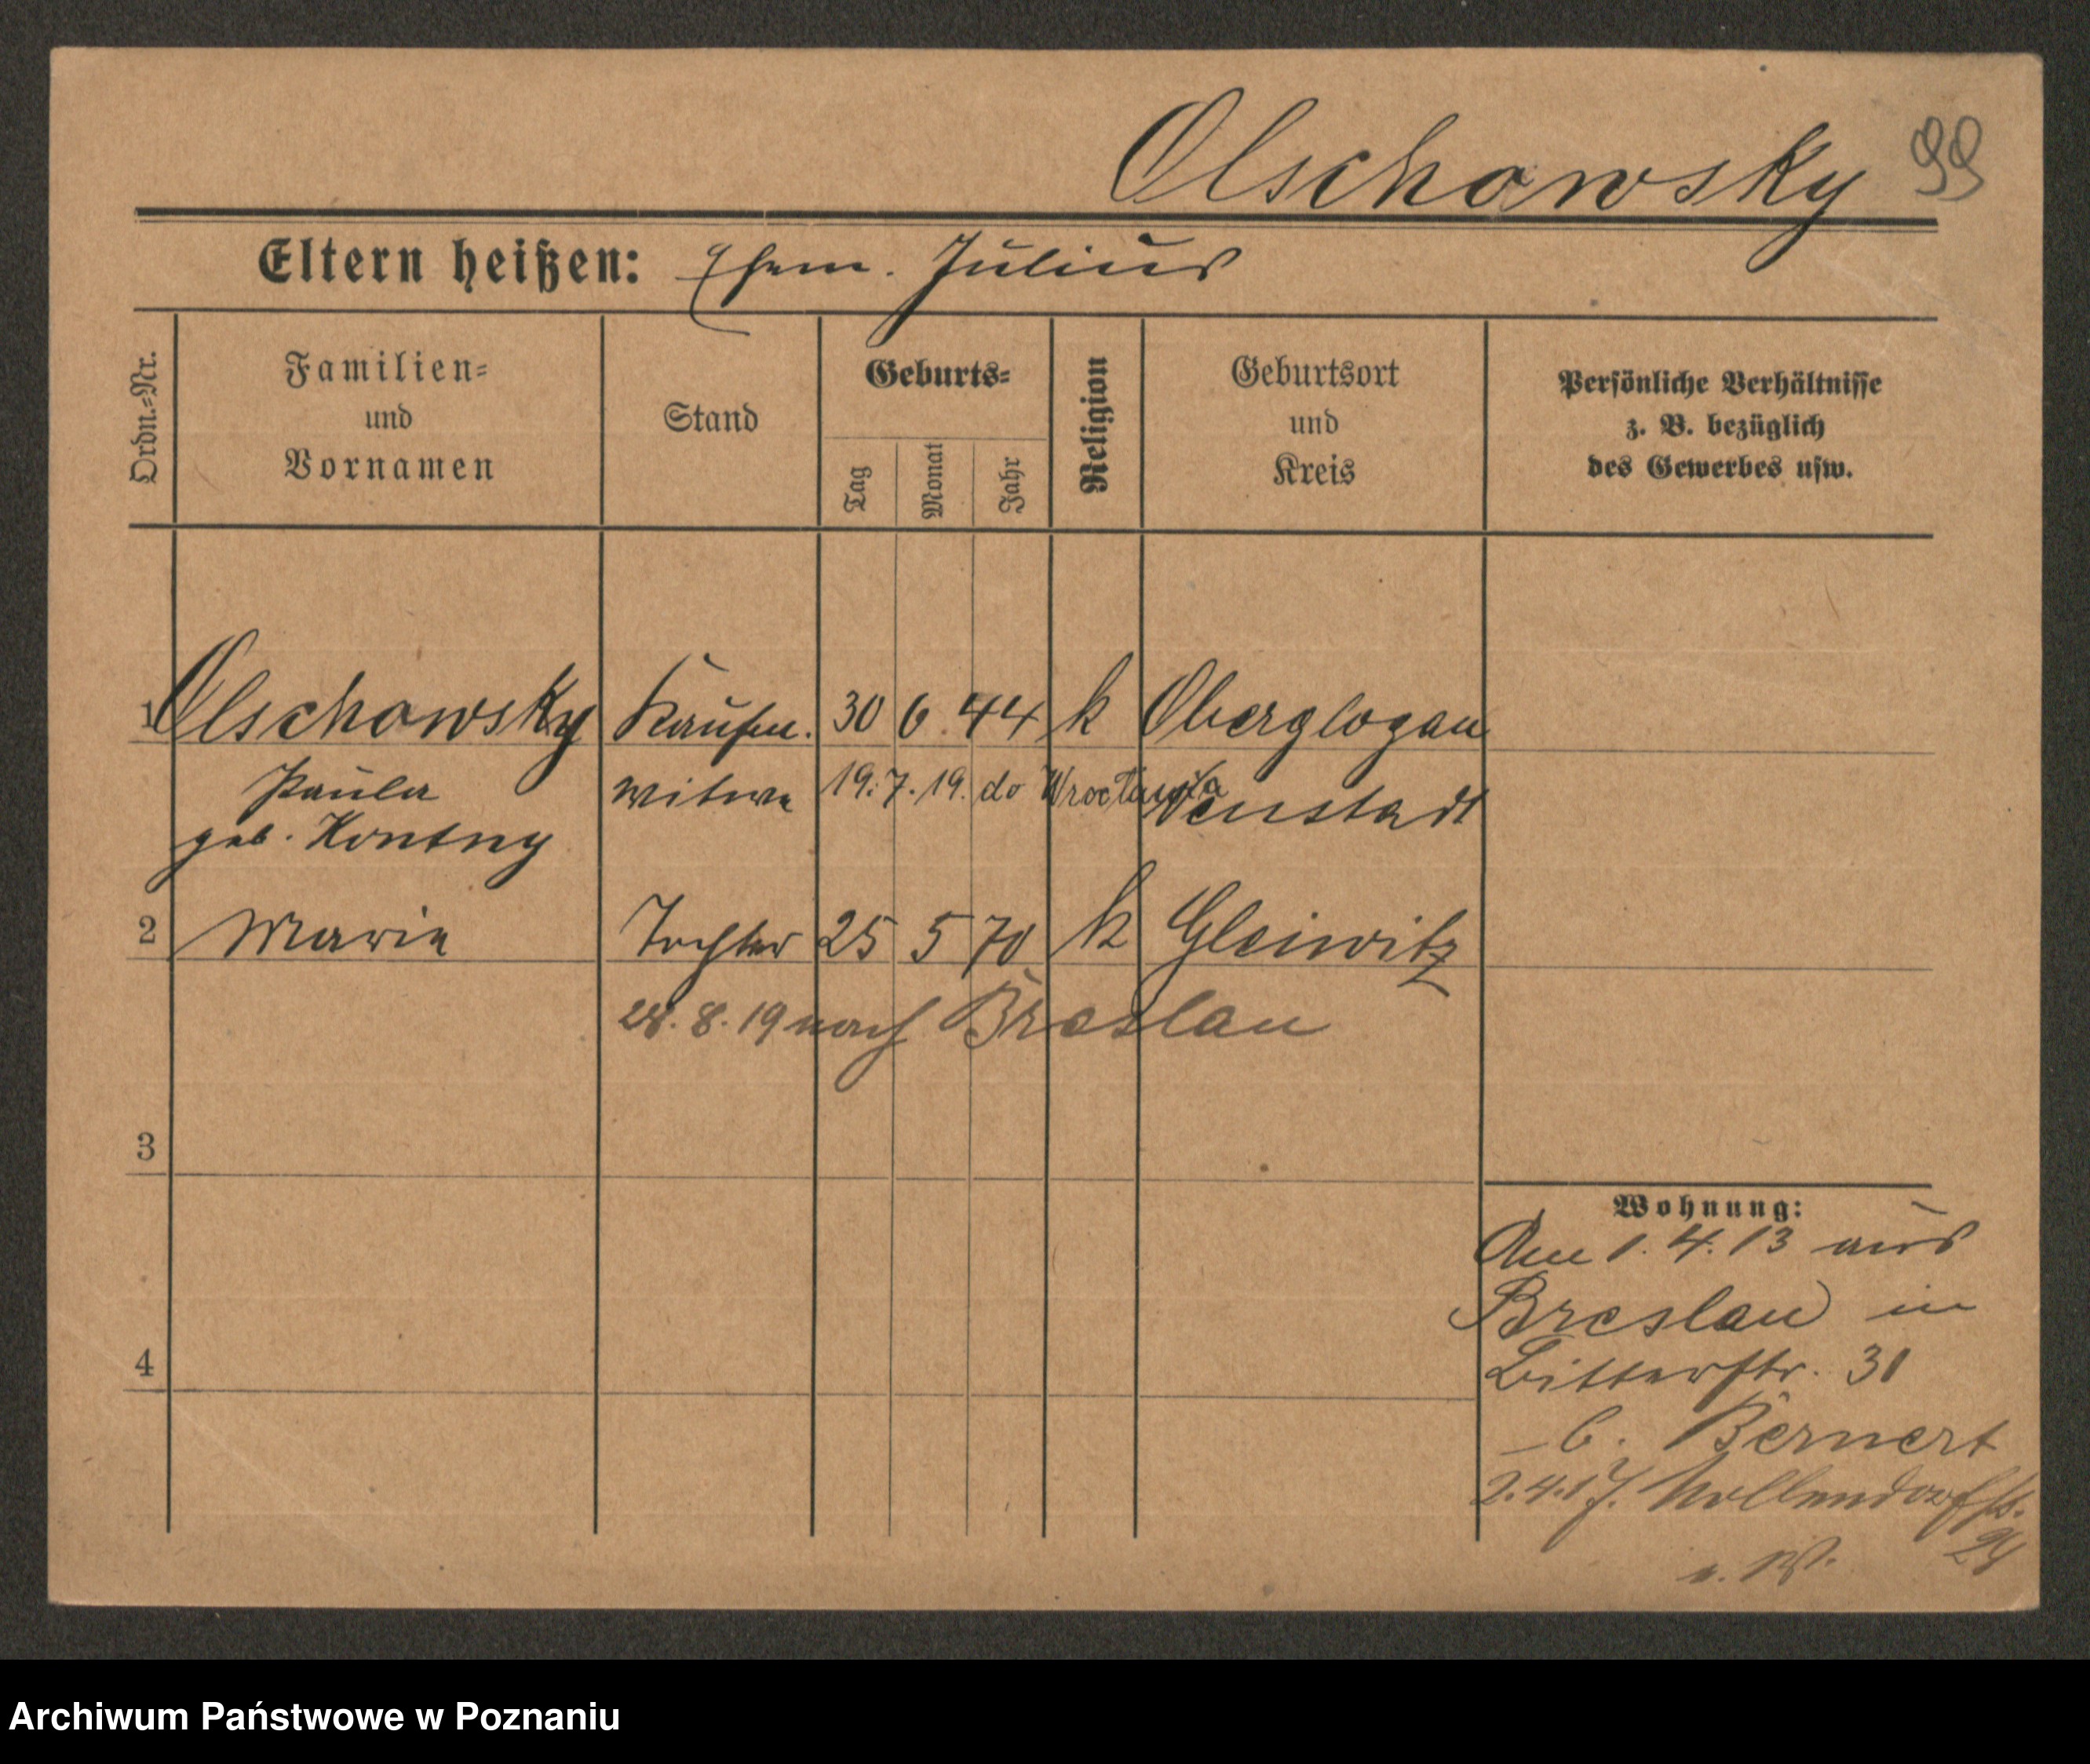 Olschowsky 99
Eltern heißen: Ehem. Julius
Ordn.-Nr.
Familien-
und
Vornamen
Stand
Geburts-
Tag
Monat
Jahr
Religion
Geburtsort
und
Kreis
Persönliche Verhältnisse
z. B. bezüglich
des Gewerbes usw.
1 Olschowsky Kaufm. 30 6. 44 k Oberglogau
Paula witwe 19.7.19. do Wrocławia Neustadt
geb. Kontny
2 Marie Tochter 25 5 70 k Gleiwitz
28.8.19 nach Breslau
3
4
Wohnung:
Am 1.4.13 aus
Breslau in
Ritterstr. 31
b. Bernert
2.4.17. Nollendorfstr.
24
Archiwum Państwowe w Poznaniu